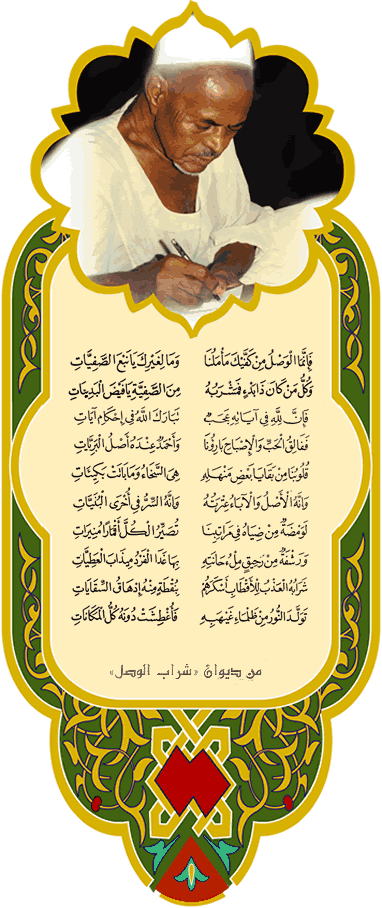 فَإِنَّمَا الْوَصْلُ مِنْ كَفَّيْكَ مَأْمَلُنَا وَمَا لِغَيْرِكَ يَا نَبْعَ الصَّفِيَّاتِ
وَكُلُّ مَنْ كَانَ ذَا بَدْءٍ فَمَشْرَبُهُ مِنَ الصَّفِيَّةِ يَا فَيْضَ الْبَدِيعَاتِ
فَإِنَّ لِلَّهِ فِي آيَاتِهِ عَجَبٌ تَبَارَكَ اللَّهُ فِي إِحْكَامِ آيَاتِ
فَفَالِقُ الْحَبِّ وَالْإِصْبَاحِ بَارِؤُنَا وَأَحْمَدٌ عِنْدَهُ أَصْلُ الْبَرِيَّاتِ
قُلُوبُنَا مِنْ بَقَايَا بَعْضِ مَنْهَلِهِ هِيَ السَّخَاءُ وَمَا بَاتَتْ
وَإِنَّهُ الْأَصْلُ وَالْآبَاءُ عِتْرَتُهُ وَإِنَّهُ السِّرُّ فِي أُخْرَى الْبُنَيَّاتِ
لَوَمْضَةٌ مِنْ ضِيَاهُ فِي مَرَاتِبِنَا تُصَيِّرُ الْكُلَّ أَقْمَارًا مُنِيرَاتِ
وَرَشْفَةٌ مِنْ رَحِيقٍ مِلْءُ حَانَتِهِ بِهَا غَدَا الْفَرْدُ مِجْذَابَ الْعَطِيَّاتِ
شَرَابُهُ الْعَذْبُ لِلْأَقْطَابِ أَسْكَرَهُمْ بِنُقْطَةٍ مِنْهُ إِدْهَاقُ السِّقَايَاتِ
تَوَلَّدَ النُّورُ مِنْ ظَلْمَاءِ غَيْهَبِهِ فَأُغْطِشَتْ دُونَهُ كُلُّ الْمَكَانَاتِ
من ديوان «شراب الوصل»